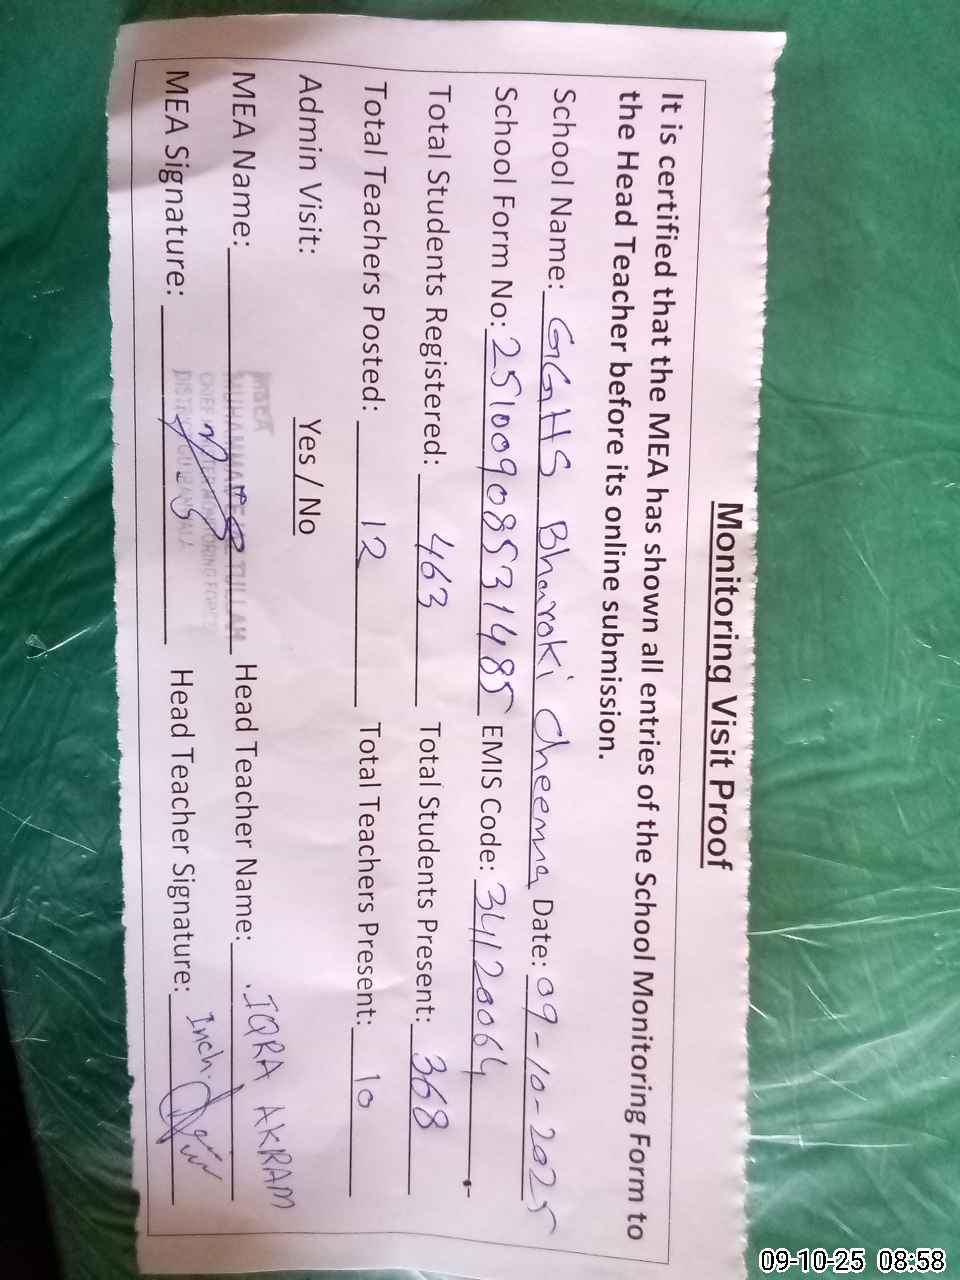 Monitoring Visit Proof
It is certified that the MEA has shown all entries of the School Monitoring Form to
the Head Teacher before its online submission.
School Name: GGHS Bharoki Cheema Date: 09-10-2025
School Form No: 25100908531485 EMIS Code: 34120064
Total Students Registered: 463 Total Students Present: 368
Total Teachers Posted: 12 Total Teachers Present: 10
Admin Visit: Yes / No
MEA Name: MUHAMMAD Head Teacher Name: IQRA AKRAM
MEA Signature: Head Teacher Signature: Inch.
09-10-25 08:58